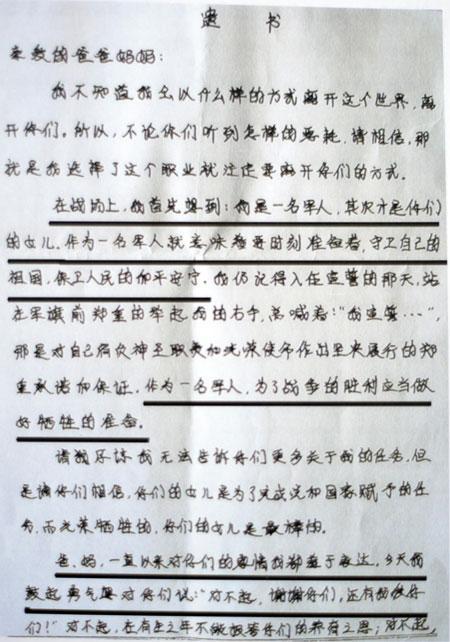 遗 书
亲敬的爸爸妈妈：
我不知道我会以什么样的方式离开这个世界，离
开你们。所以，不论你们听到怎样的噩耗，请相信，那
就是我选择了这个职业就注定要离开你们的方式。
在战场上，我首先想到：我是一名军人，其次才是你们
的女儿。作为一名军人就意味着要时刻准备着，守卫自己的
祖国，保卫人民的和平安宁。我仍记得入伍宣誓的那天，站
在军旗前郑重的举起我的右手，高喊着："我宣誓……"，
那是对自己肩负神圣职责和光荣使命作出要履行的郑
重承诺和保证。作为一名军人，为了战争的胜利应当做
好牺牲的准备。
请我原谅我无法告诉你们更多关于我的任务，但
是请你们相信，你们的女儿是为了完成党和国家赋予的任
务，而光荣牺牲的，你们的女儿是最棒的。
爸、妈，一直以来对你们的感情我都羞于表达，今天我
鼓起勇气要对你们说："对不起，谢谢你们，还有我爱你
们！"对不起，在有生之年不能报答你们的养育之恩；对不起，